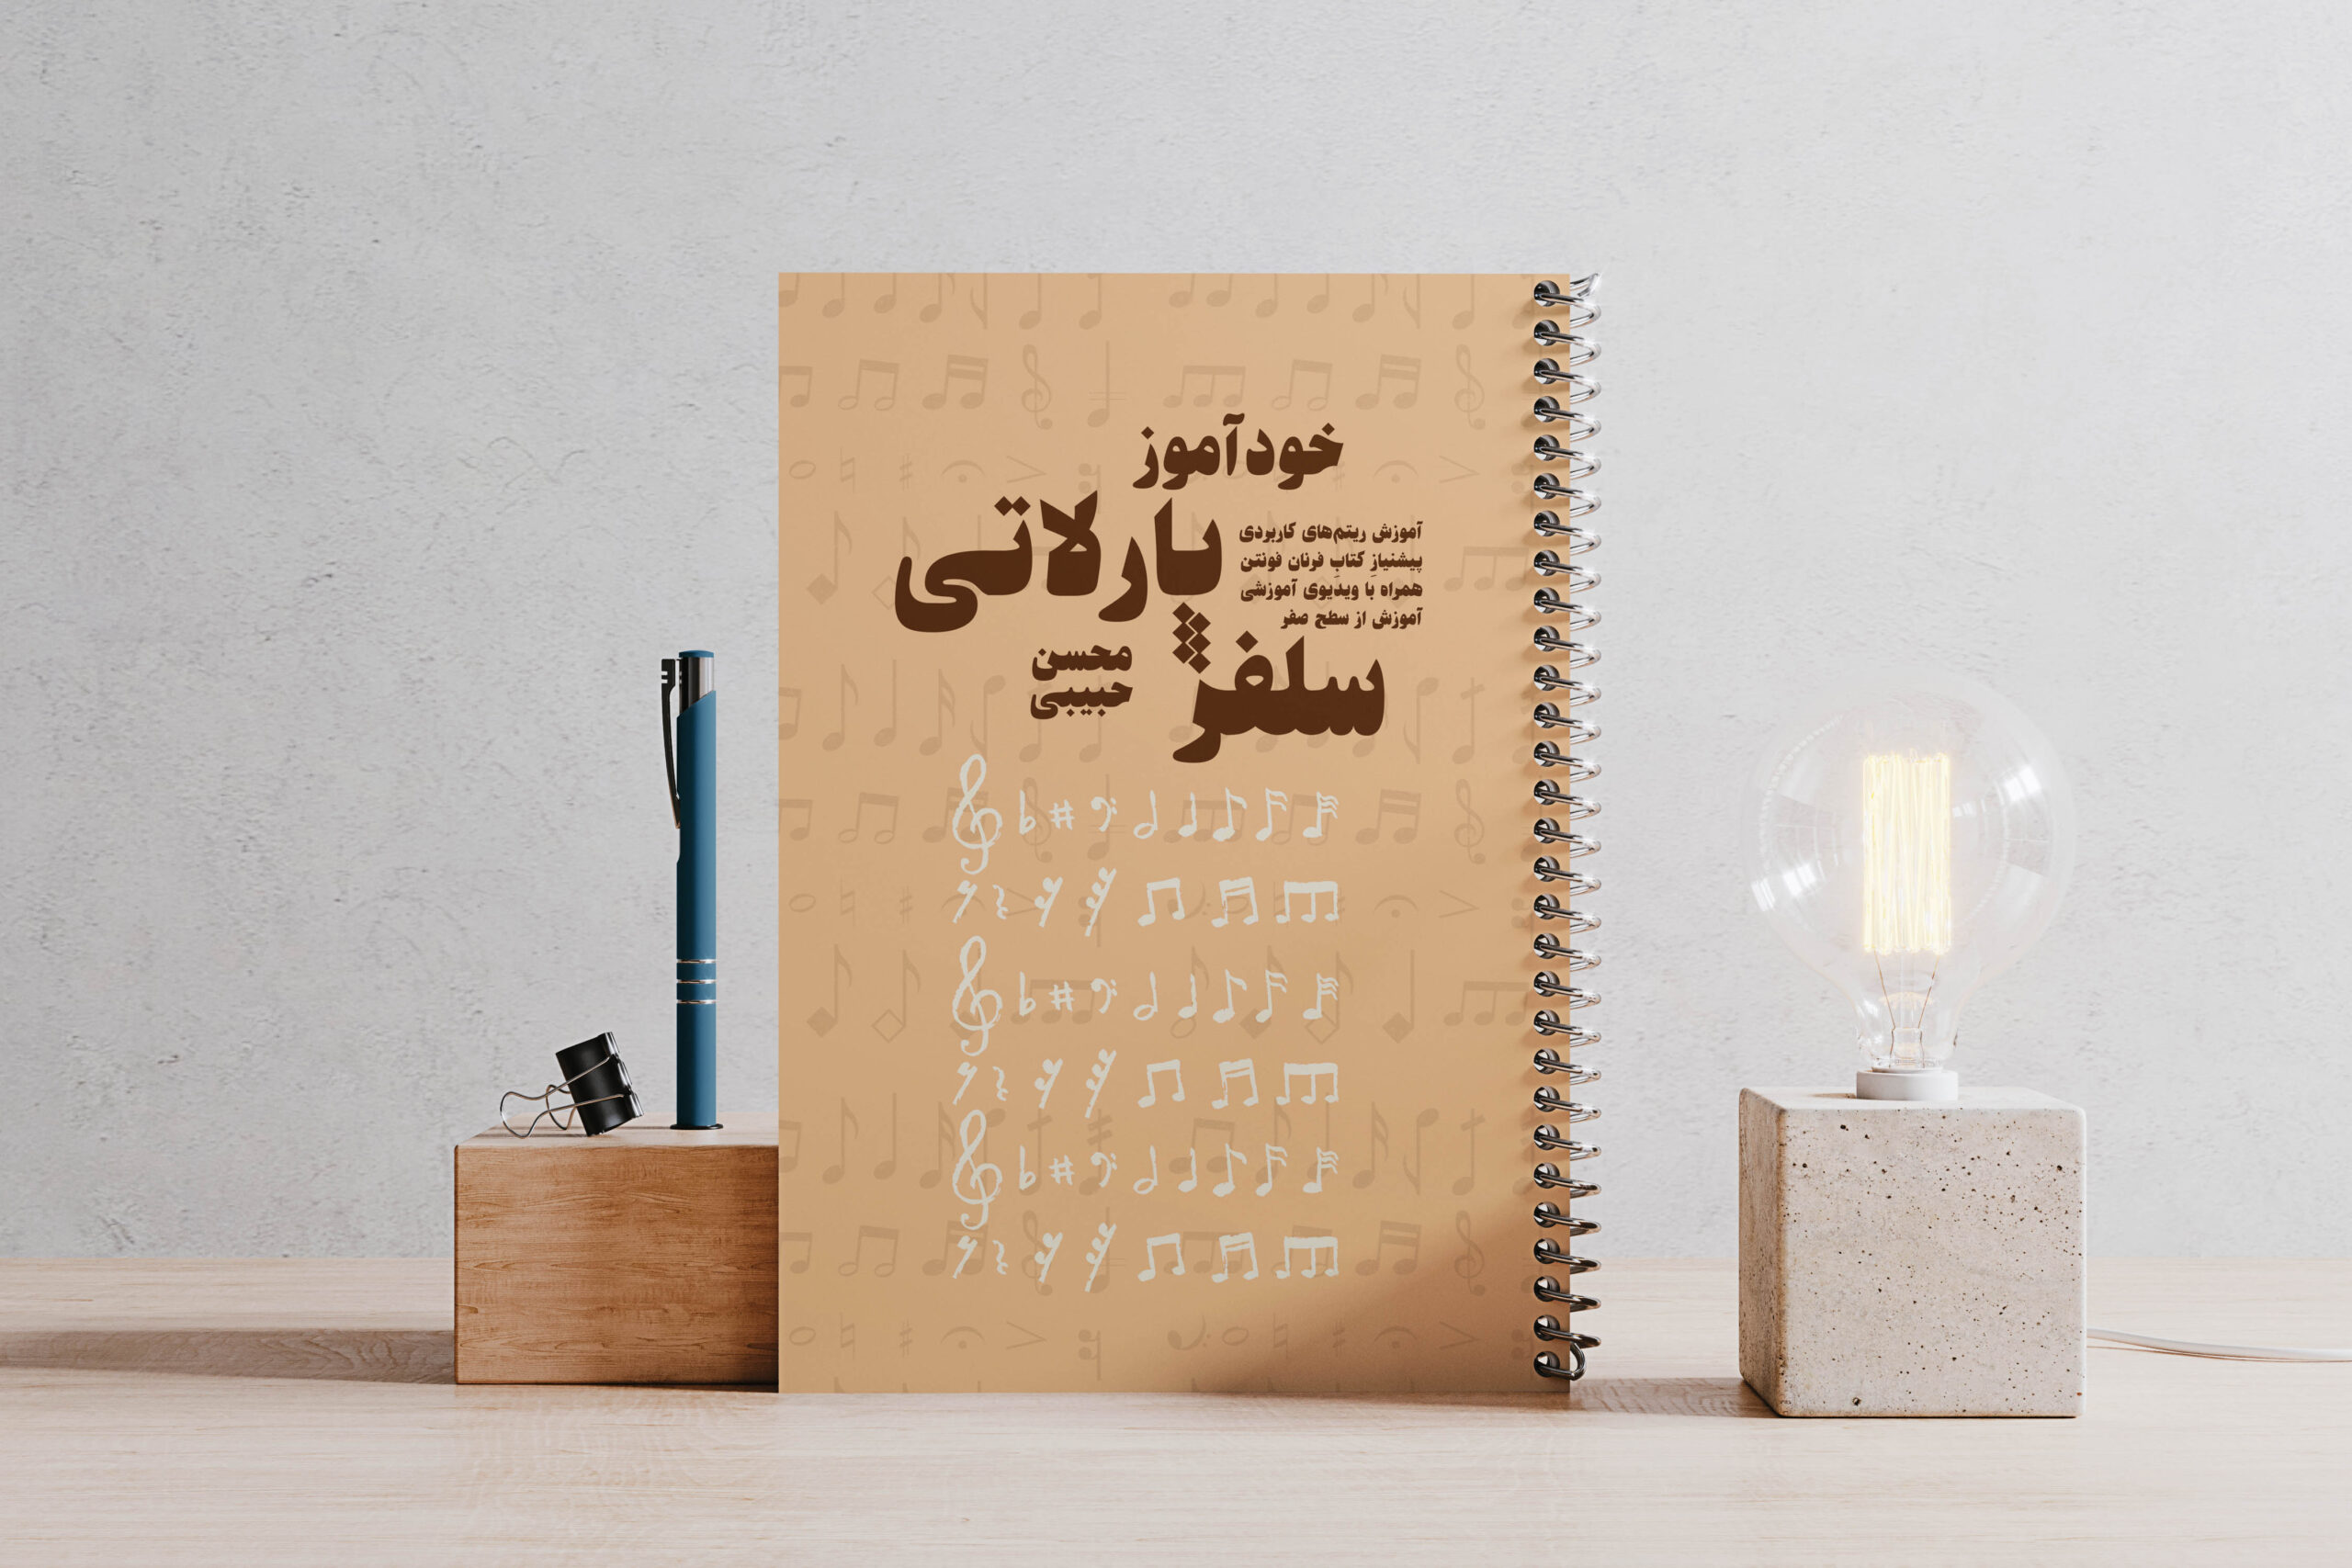 خودآموز
پارلاتی
آموزش ریتم‌های کاربردی
پیشنیازِ کتابِ فرنان فونتن
همراه با ویدیوی آموزشی
آموزش از سطح صفر
سلفژ
محسن
حبیبی